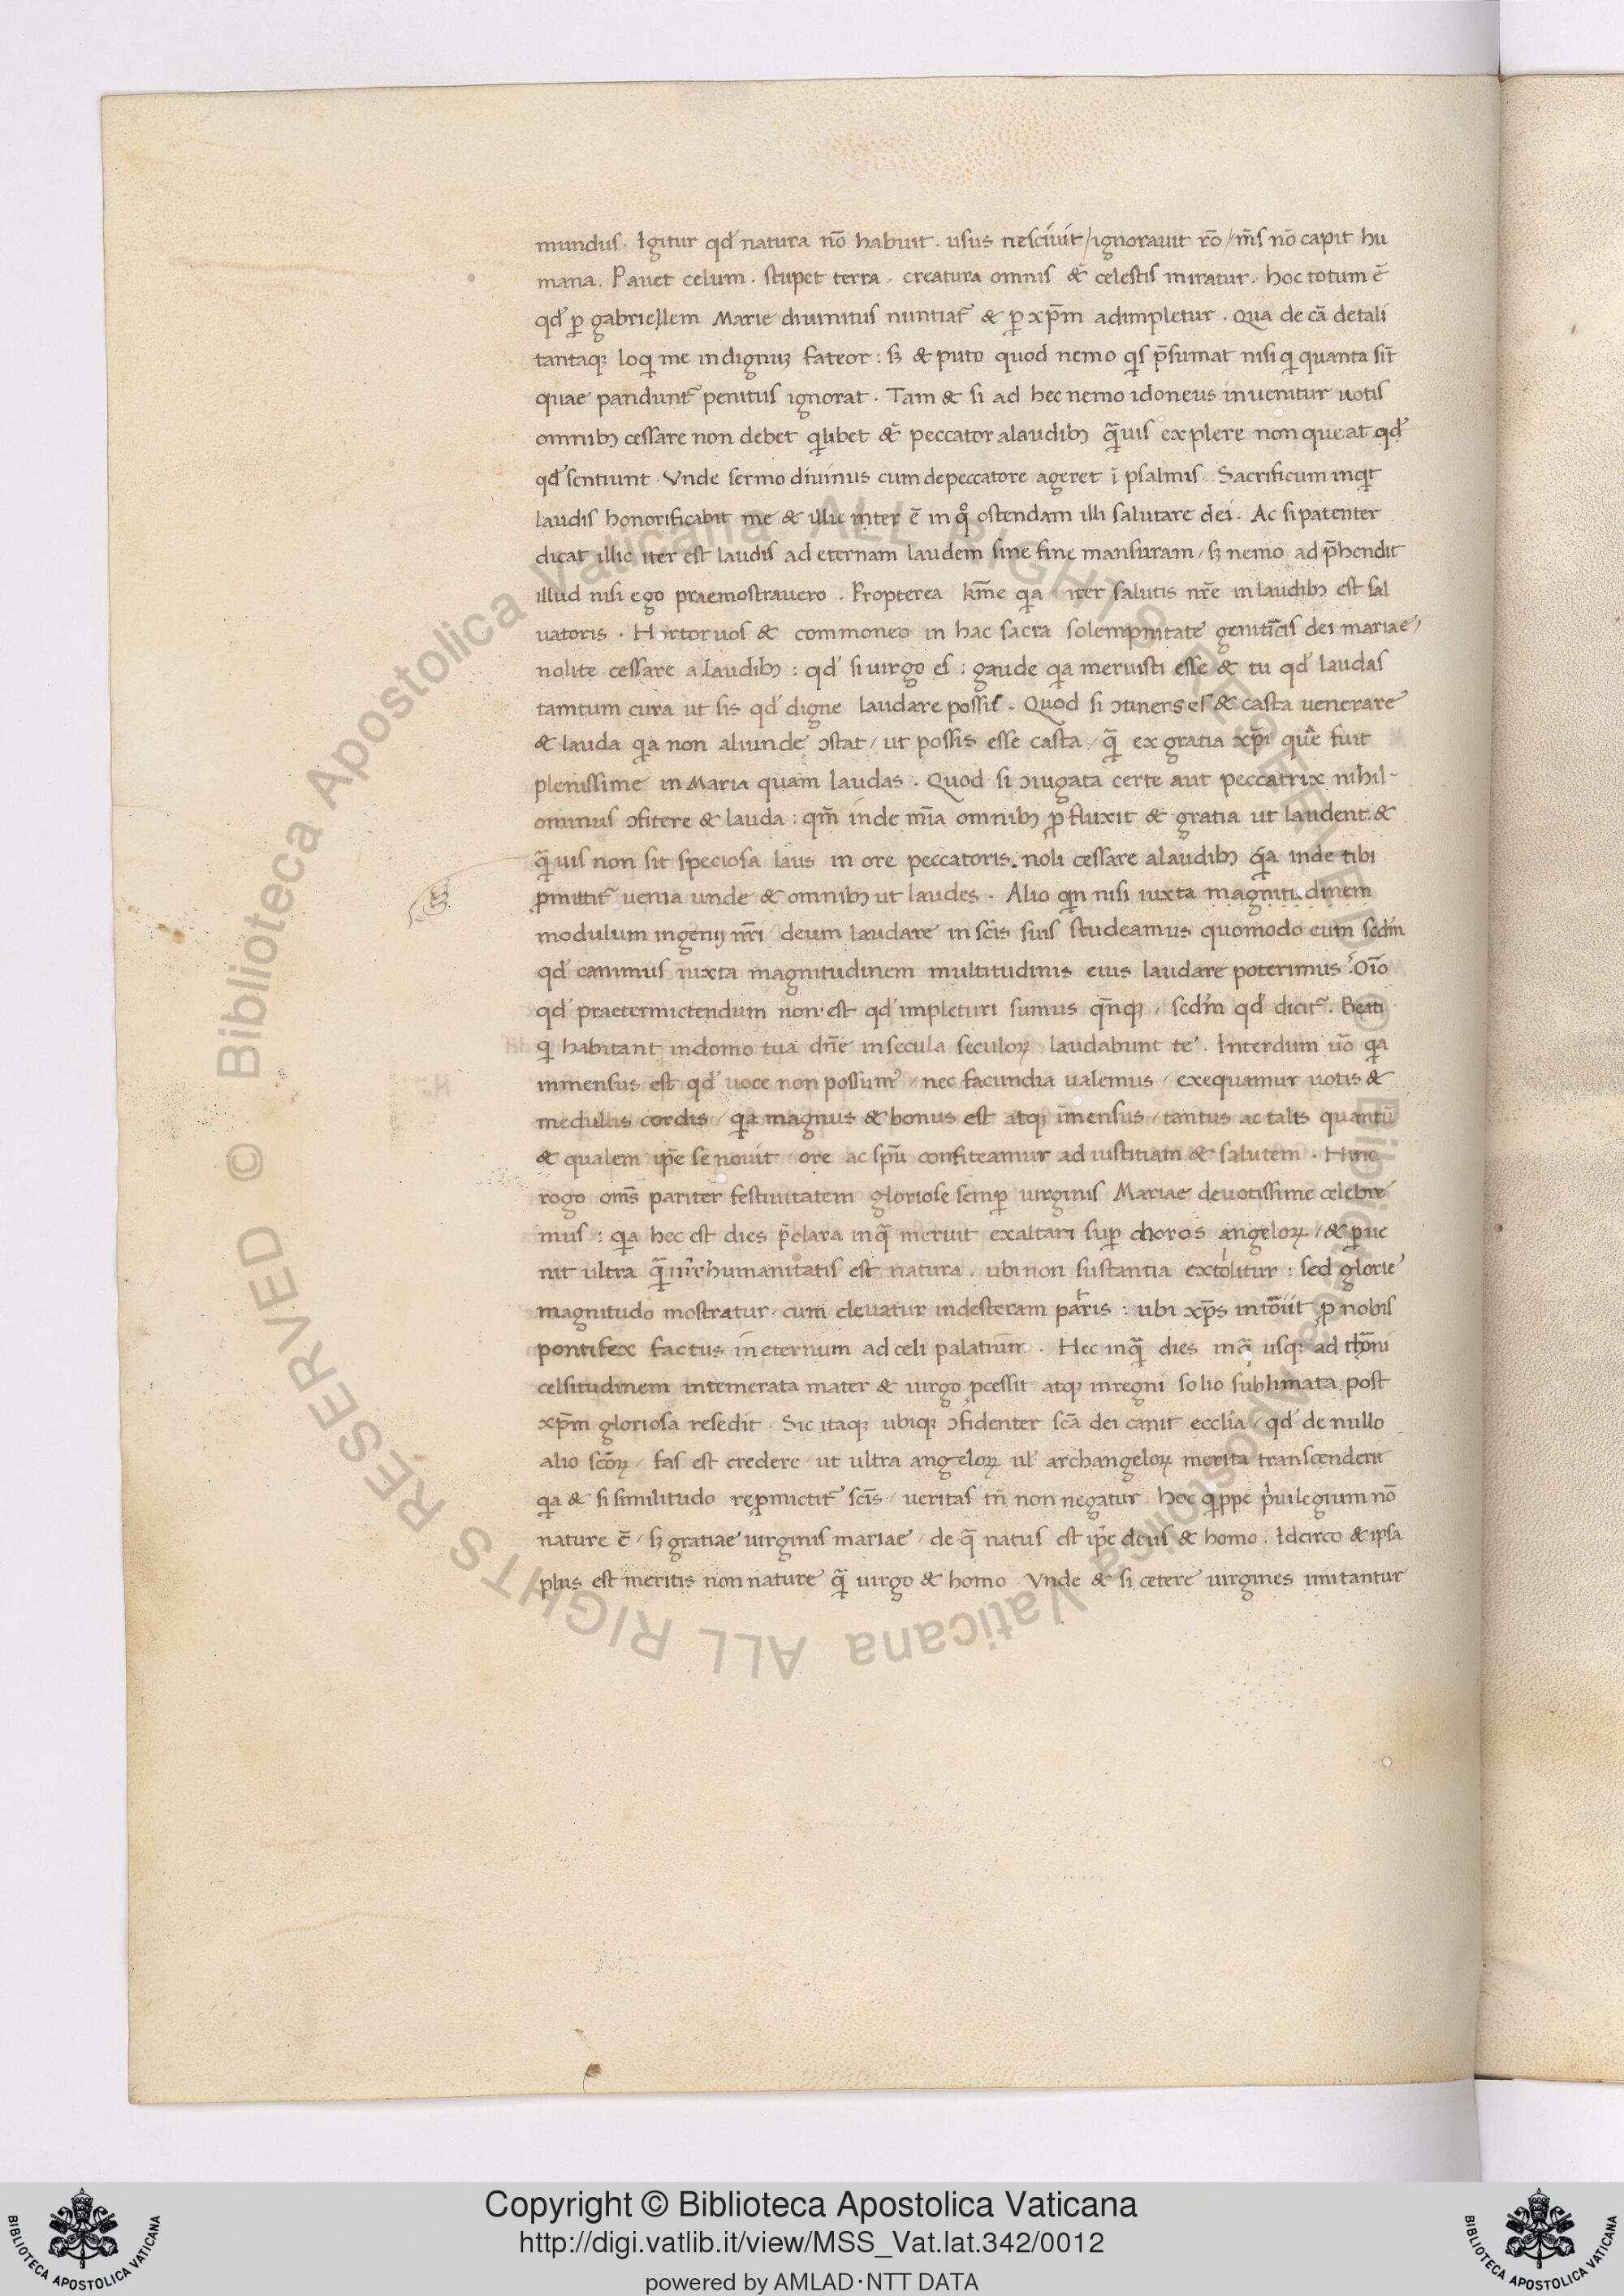 mundus. Igitur qd̕ natura nō habuit. usus nescivit / ignorauit rō / m̄s nō capit hu
mana. Pauet celum. stupet terra. creatura omnis &̄ celestis miratur. hoc totum ē
qd̕ ꝑ gabriellem Marie diuinitus nuntiat᷑ & ꝑ xp̄m adimpletur. Qua de cā detali
tantaqꝫ loqi me indignuꝫ fateor: sꝫ & puto quod nemo qis p̄sumat nisi qi quanta sit̄
quae pandunt᷑ penitus ignorat. Tam & si ad hec nemo idoneus inuenitur uotis
omnibꝫ cessare non debet qilibet &̄ peccator alaudibꝫ qᷓuis explere non queat qd̕
qd̕ sentiunt. Vnde sermo diuinus cum depeccatore ageret ī psalmis. Sacrificum inqit
laudis honorificabit me & illic inter ē in qͦ ostendam illi salutare dei. Ac si patenter
dicat illic iter est laudis ad eternam laudem sine fine mansuram / sꝫ nemo adp̄hendit
illud nisi ego praemostrauero. Propterea km̄e qia iter salutis nr̄e in laudibꝫ est sal
uatoris. Hortor uos & commoneo in hac sacra solempnitate genitͥcis dei mariae /
nolite cessare a laudibꝫ: qd̕ si uirgo es: gaude qia meruisti esse & tu qd̕ laudas
tamtum cura ut sis qd̕ digne laudare possis. Quod si ↄtinens es & casta uenerare
& lauda qia non aliunde ↄstat / ut possis esse casta / qᷓ ex gratia xp̄i que᷑ fuit
plenissime in Maria quam laudas. Quod si ↄiugata certe aut peccatrix nihil-
ominus ↄfitere & lauda: qm̄ inde mīa omnibꝫ ꝓfluxit & gratia ut laudent. &
qᷓuis non sit speciosa laus in ore peccatoris. noli cessare alaudibꝫ qia inde tibi
ꝓmittit᷑ uenia unde & omnibꝫ ut laudes. Alio qin nisi iuxta magnitudinem
modulum ingenij nr̄i deum laudare in scīs suis studeamus quomodo eum scd̄m
qd̕ canimus iuxta magnitudinem multitudinis eius laudare poterimus? Oīo
qd̕ praetermictendum non est qd̕ impleturi sumus qn̄qꝫ / scd̄m qd̕ dicit᷑. Beati
qi habitant indomo tua dn̄e insecula seculoꝝ laudabunt te. Interdum ūo qia
inmensus est qd̕ uoce non possumꝰ / nec facundia ualemus / exequamur uotis &
medullis cordis / qia magnus & bonus est atqꝫ īmensus / tantus ac talis quantū
& qualem ip̄e se nouit / ore ac spū confiteamur ad iustitiam & salutem. Hinc
rogo om̄s pariter festiuitatem gloriose semꝑ uirginis Mariae deuotissime celebre
mus: qia hec est dies p̄clara inqᷓ meruit exaltari suꝑ choros angeloꝝ / & ꝑue
nit ultra qᷓ nr̄e humanitatis est natura. ubi non sustantia extolitur: sed glorie
magnitudo mostratur. cum eleuatur indesteram patris: ubi xp̄s intͦūit ꝓ nobis
pontifex factus in eternum ad celi palatium. Hec inqᷓ dies inqᷓ usqꝫ ad thͦni
celsitudinem intemerata mater & uirgo ꝓcessit atqꝫ inregni solio sublimata post
xp̄m gloriosa resedit. Sic itaqꝫ ubiqꝫ ↄfidenter scā dei canit ecclīa / qd̕ de nullo
alio scōꝝ / fas est credere / ut ultra angeloꝝ ul̕ archangeloꝝ merita transcenderit
qia & si similitudo reꝓmictit᷑ scīs / ueritas tn̄ non negatur. hoc qippe pͥuilegium nō
nature ē / sꝫ gratiae uirginis mariae / de qᷓ natus est ip̄e deus & homo. Idcirco & ipsa
plus est meritis non nature qᷓ uirgo & homo. Vnde & si cetere uirgines imitantur
© Biblioteca Apostolica Vaticana ALL RIGHTS RESERVED © Biblioteca Apostolica Vaticana ALL RIGHTS RESERVED
Copyright © Biblioteca Apostolica Vaticana
http://digi.vatlib.it/view/MSS_Vat.lat.342/0012
powered by AMLAD·NTT DATA
BIBLIOTECA APOSTOLICA VATICANA
BIBLIOTECA APOSTOLICA VATICANA